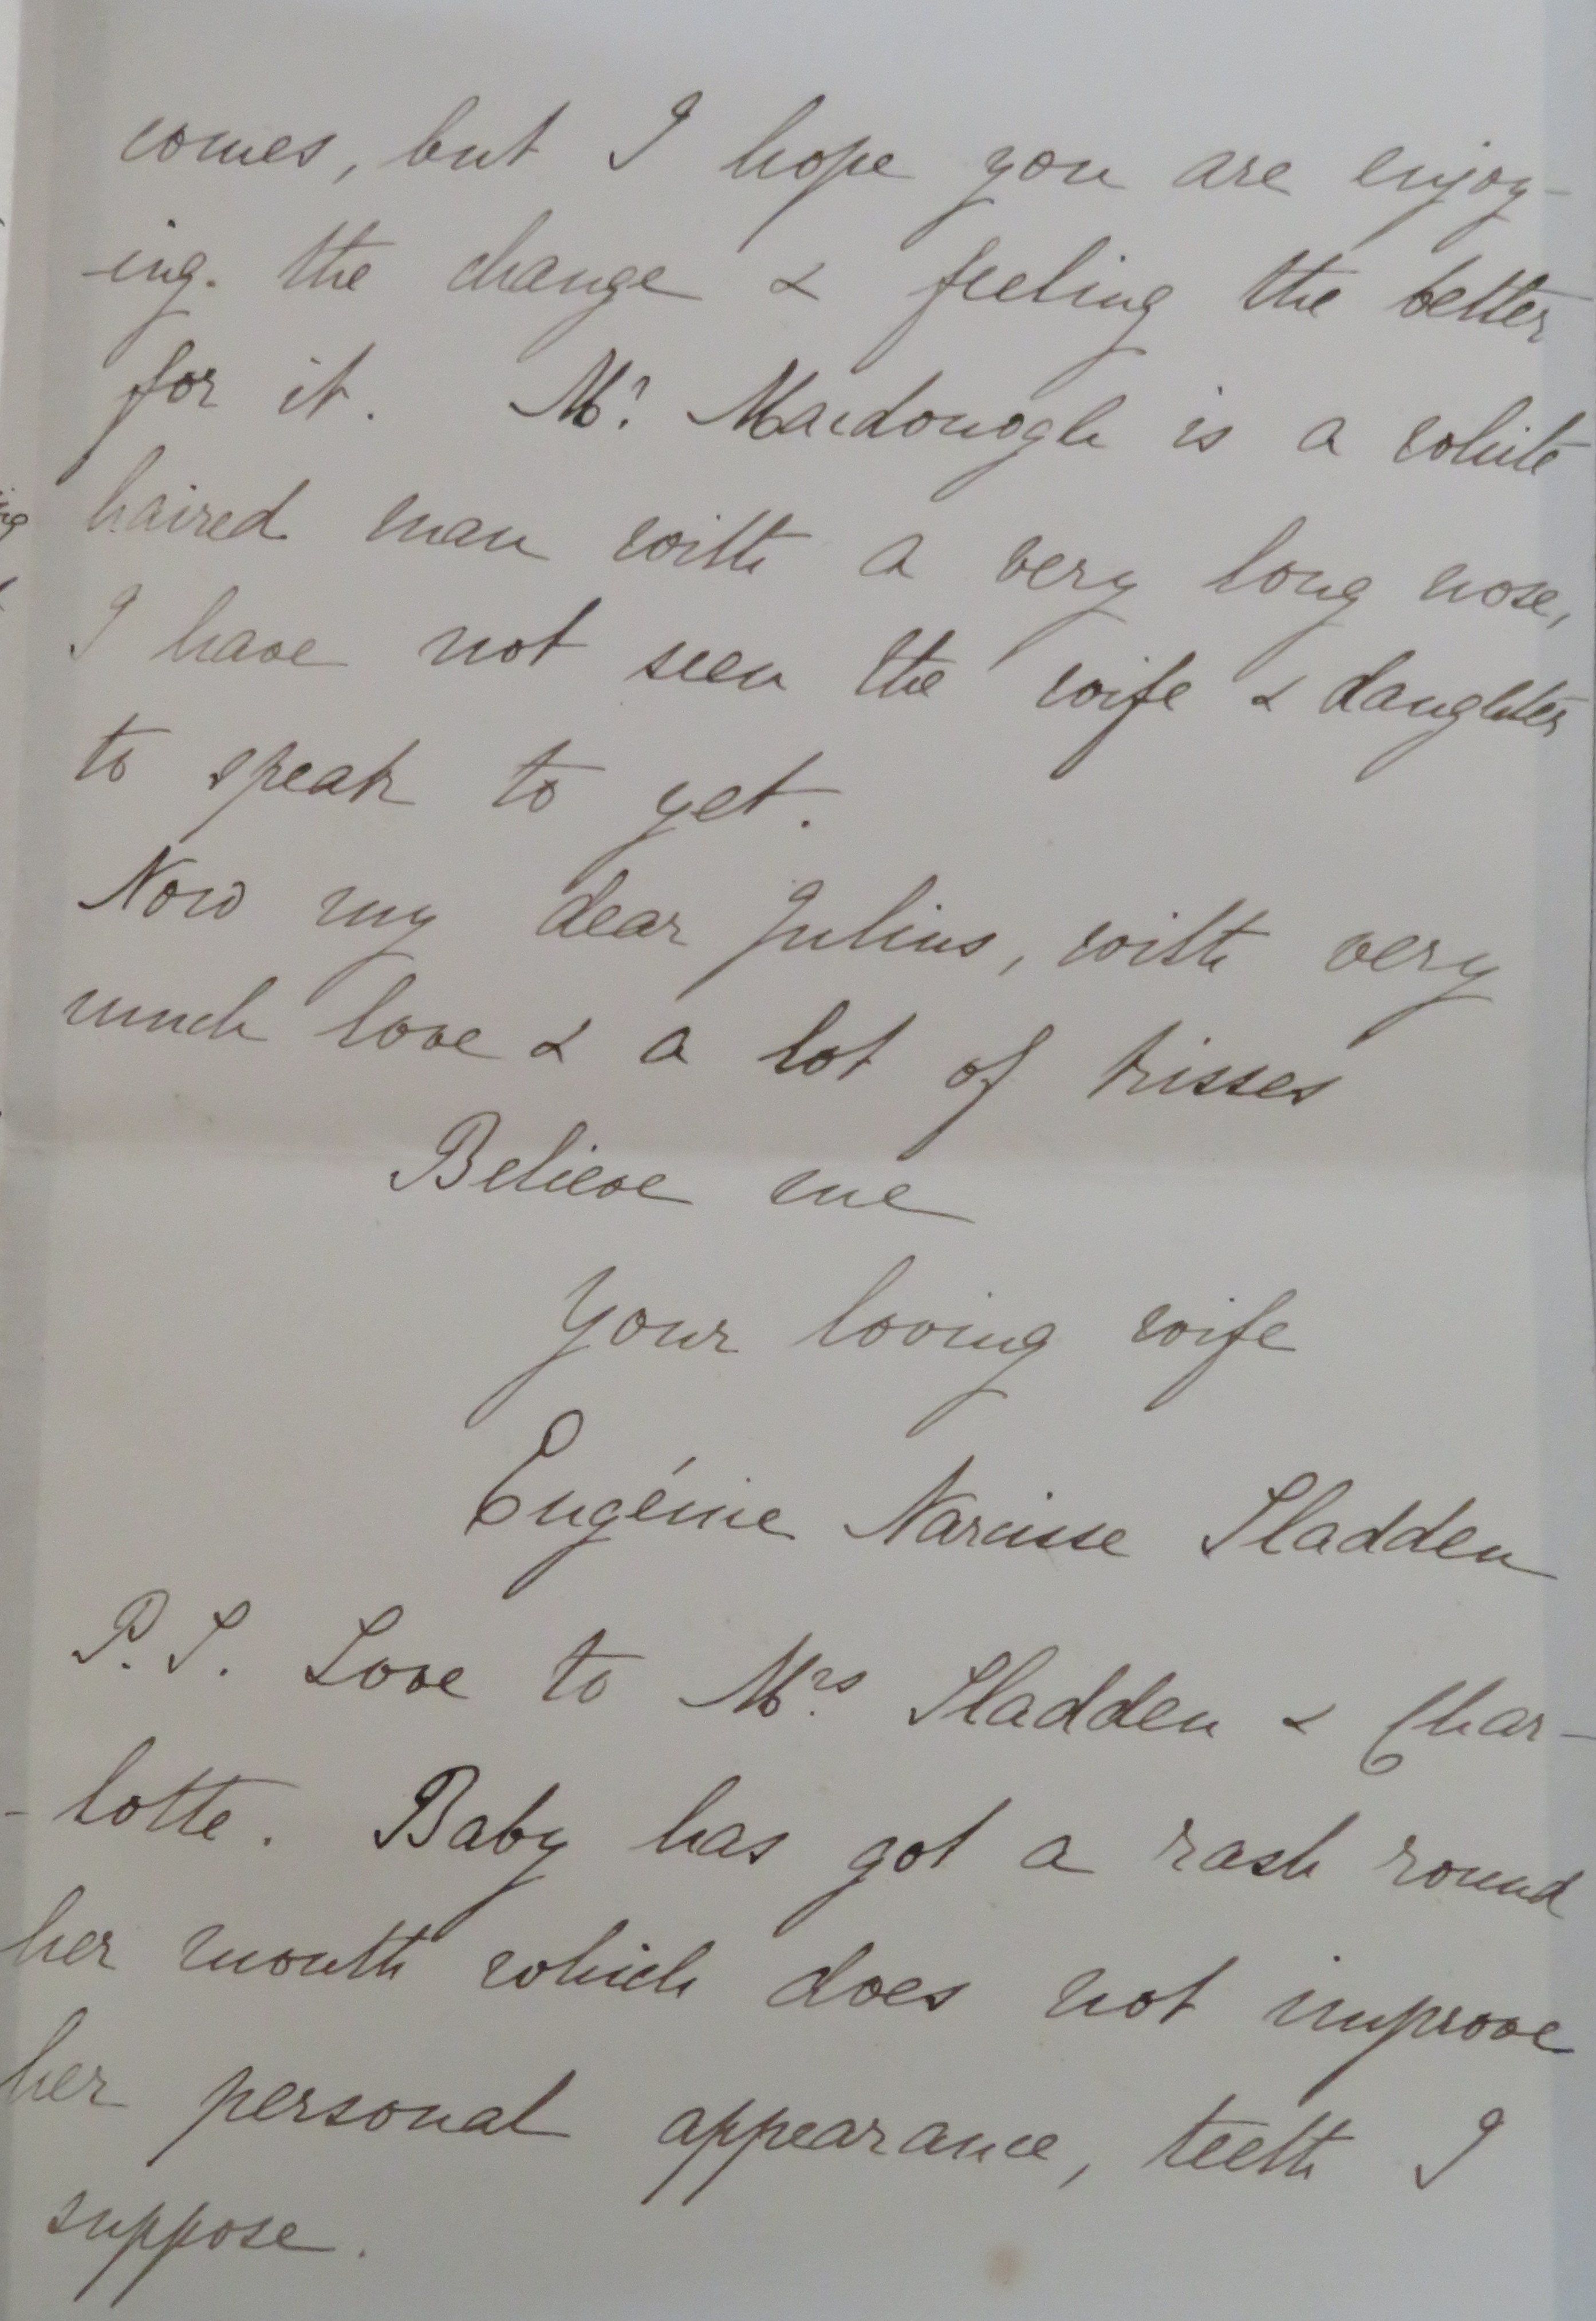 comes, but I hope you are enjoy-
-ing. the change & feeling the better
for it. Mr. Macdonogh is a white
haired man with a very long nose,
I have not seen the wife & daughter
to speak to yet.
Now my dear Julius, with very
much love & a lot of kisses
Believe me
Your loving wife
Eugénie Narcisse Sladden
P.S. Love to Mrs. Sladden & Char-
-lotte. Baby has got a rash round
her mouth which does not improve
her personal appearance, teeth I
suppose.